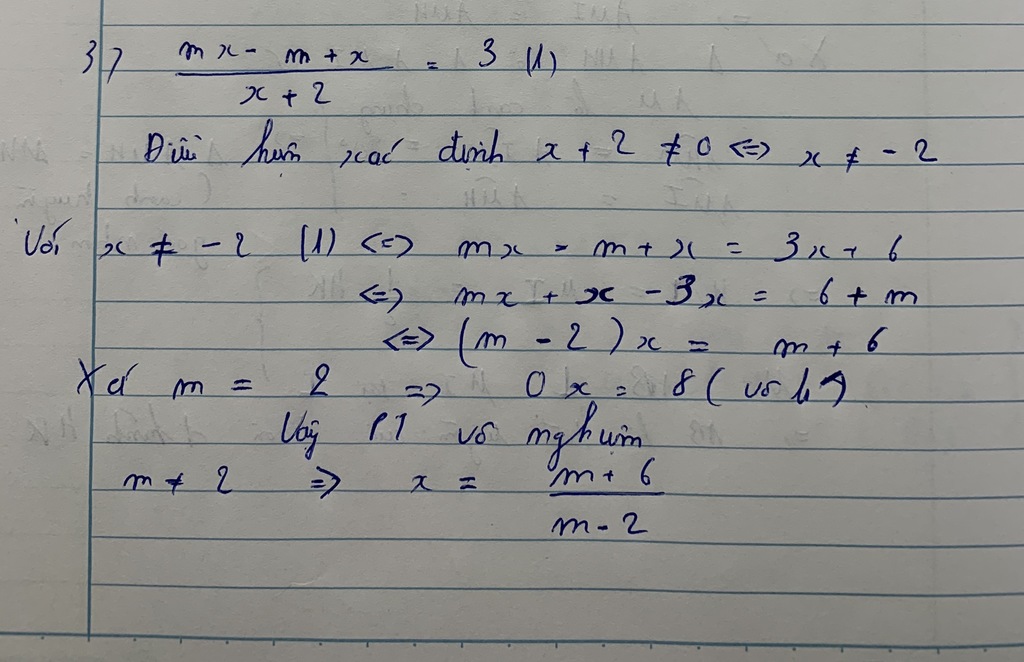 3) \frac{mx - m + x}{x + 2} = 3 (1)
Điều kiện xác định x + 2 ≠ 0 <=> x ≠ -2
Với x ≠ -2 (1) <=> mx - m + x = 3x + 6
<=> mx + x - 3x = 6 + m
<=> (m - 2)x = m + 6
Xét m = 2 => 0x = 8 (vô lý)
Vậy PT vô nghiệm
m ≠ 2 => x = \frac{m + 6}{m - 2}